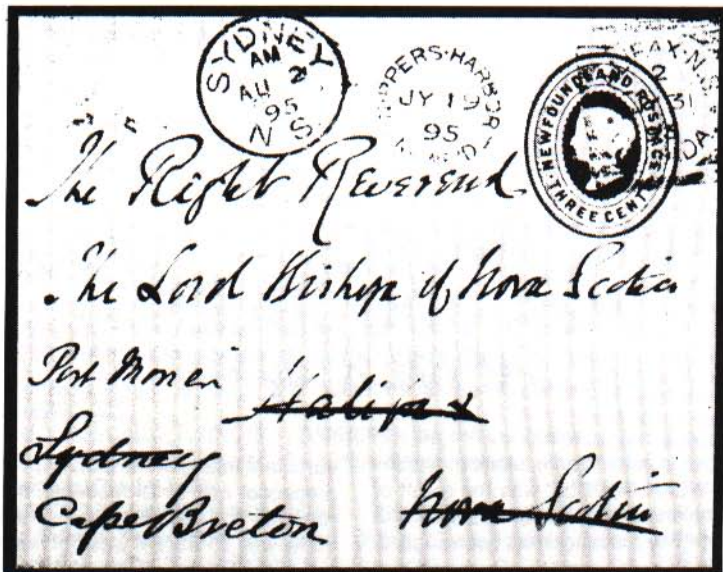 SYDNEY
AM
AU 2
95
N S
PERS·HARBOR
JY 19
95
FAX·N.S
31
DA
NEWFOUNDLAND POSTAGE
THREE CENT
The Right Reverend
The Lord Bishop of Nova Scotia
Port Morien
Halifax
Sydney
Cape Breton
Nova Scotia